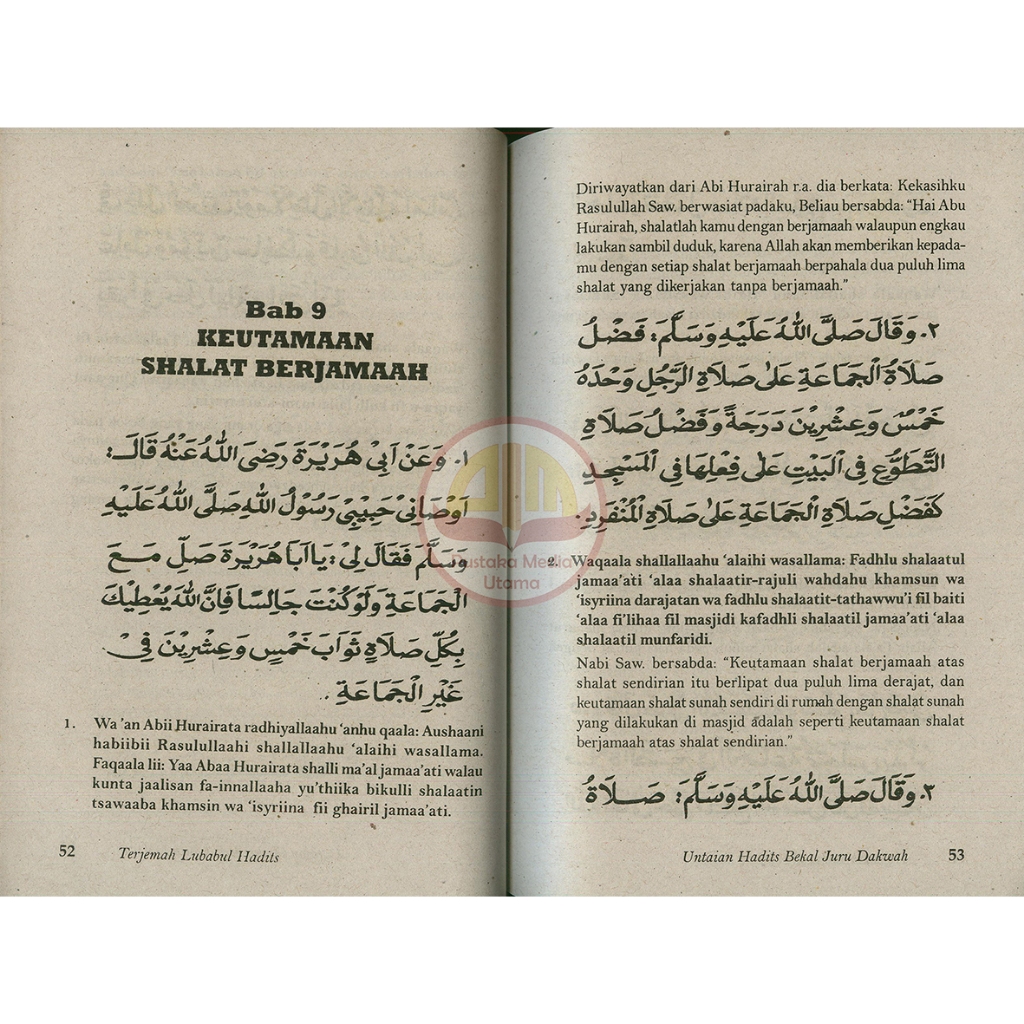 Bab 9
KEUTAMAAN
SHALAT BERJAMAAH
١. وَعَنْ اَبِيْ هُرَيْرَةَ رَضِيَ اللّٰهُ عَنْهُ قَالَ:
اَوْصَانِيْ حَبِيْبِيْ رَسُوْلُ اللّٰهِ صَلَّى اللّٰهُ عَلَيْهِ
وَسَلَّمَ فَقَالَ لِيْ: يَا اَبَا هُرَيْرَةَ صَلِّ مَعَ
الْجَمَاعَةِ وَلَوْكُنْتَ جَالِسًا فَاِنَّ اللّٰهَ يُعْطِيْكَ
بِكُلِّ صَلَاةٍ ثَوَابَ خَمْسٍ وَعِشْرِيْنَ فِيْ
غَيْرِ الْجَمَاعَةِ.
1. Wa 'an Abii Hurairata radhiyallaahu 'anhu qaala: Aushaani
habiibii Rasulullaahi shallallaahu 'alaihi wasallama.
Faqaala lii: Yaa Abaa Hurairata shalli ma'al jamaa'ati walau
kunta jaalisan fa-innallaaha yu'thiika bikulli shalaatin
tsawaaba khamsin wa 'isyriina fii ghairil jamaa'ati.
52 Terjemah Lubabul Hadits
Diriwayatkan dari Abi Hurairah r.a. dia berkata: Kekasihku
Rasulullah Saw. berwasiat padaku, Beliau bersabda: "Hai Abu
Hurairah, shalatlah kamu dengan berjamaah walaupun engkau
lakukan sambil duduk, karena Allah akan memberikan kepada-
mu dengan setiap shalat berjamaah berpahala dua puluh lima
shalat yang dikerjakan tanpa berjamaah."
٢. وَقَالَ صَلَّى اللّٰهُ عَلَيْهِ وَسَلَّمَ: فَضْلُ
صَلَاةُ الْجَمَاعَةِ عَلٰى صَلَاةِ الرَّجُلِ وَحْدَهُ
خَمْسٌ وَعِشْرِيْنَ دَرَجَةً وَفَضْلُ صَلَاةِ
التَّطَوُّعِ فِي الْبَيْتِ عَلٰى فِعْلِهَا فِي الْمَسْجِدِ
كَفَضْلِ صَلَاةِ الْجَمَاعَةِ عَلٰى صَلَاةِ الْمُنْفَرِدِ.
2. Waqaala shallallaahu 'alaihi wasallama: Fadhlu shalaatul
jamaa'ati 'alaa shalaatir-rajuli wahdahu khamsun wa
'isyriina darajatan wa fadhlu shalaatit-tathawwu'i fil baiti
'alaa fi'lihaa fil masjidi kafadhli shalaatil jamaa'ati 'alaa
shalaatil munfaridi.
Nabi Saw. bersabda: "Keutamaan shalat berjamaah atas
shalat sendirian itu berlipat dua puluh lima derajat, dan
keutamaan shalat sunah sendiri di rumah dengan shalat sunah
yang dilakukan di masjid adalah seperti keutamaan shalat
berjamaah atas shalat sendirian."
٣. وَقَالَ صَلَّى اللّٰهُ عَلَيْهِ وَسَلَّمَ: صَلَاةُ
Untaian Hadits Bekal Juru Dakwah 53
Pustaka Media
Utama